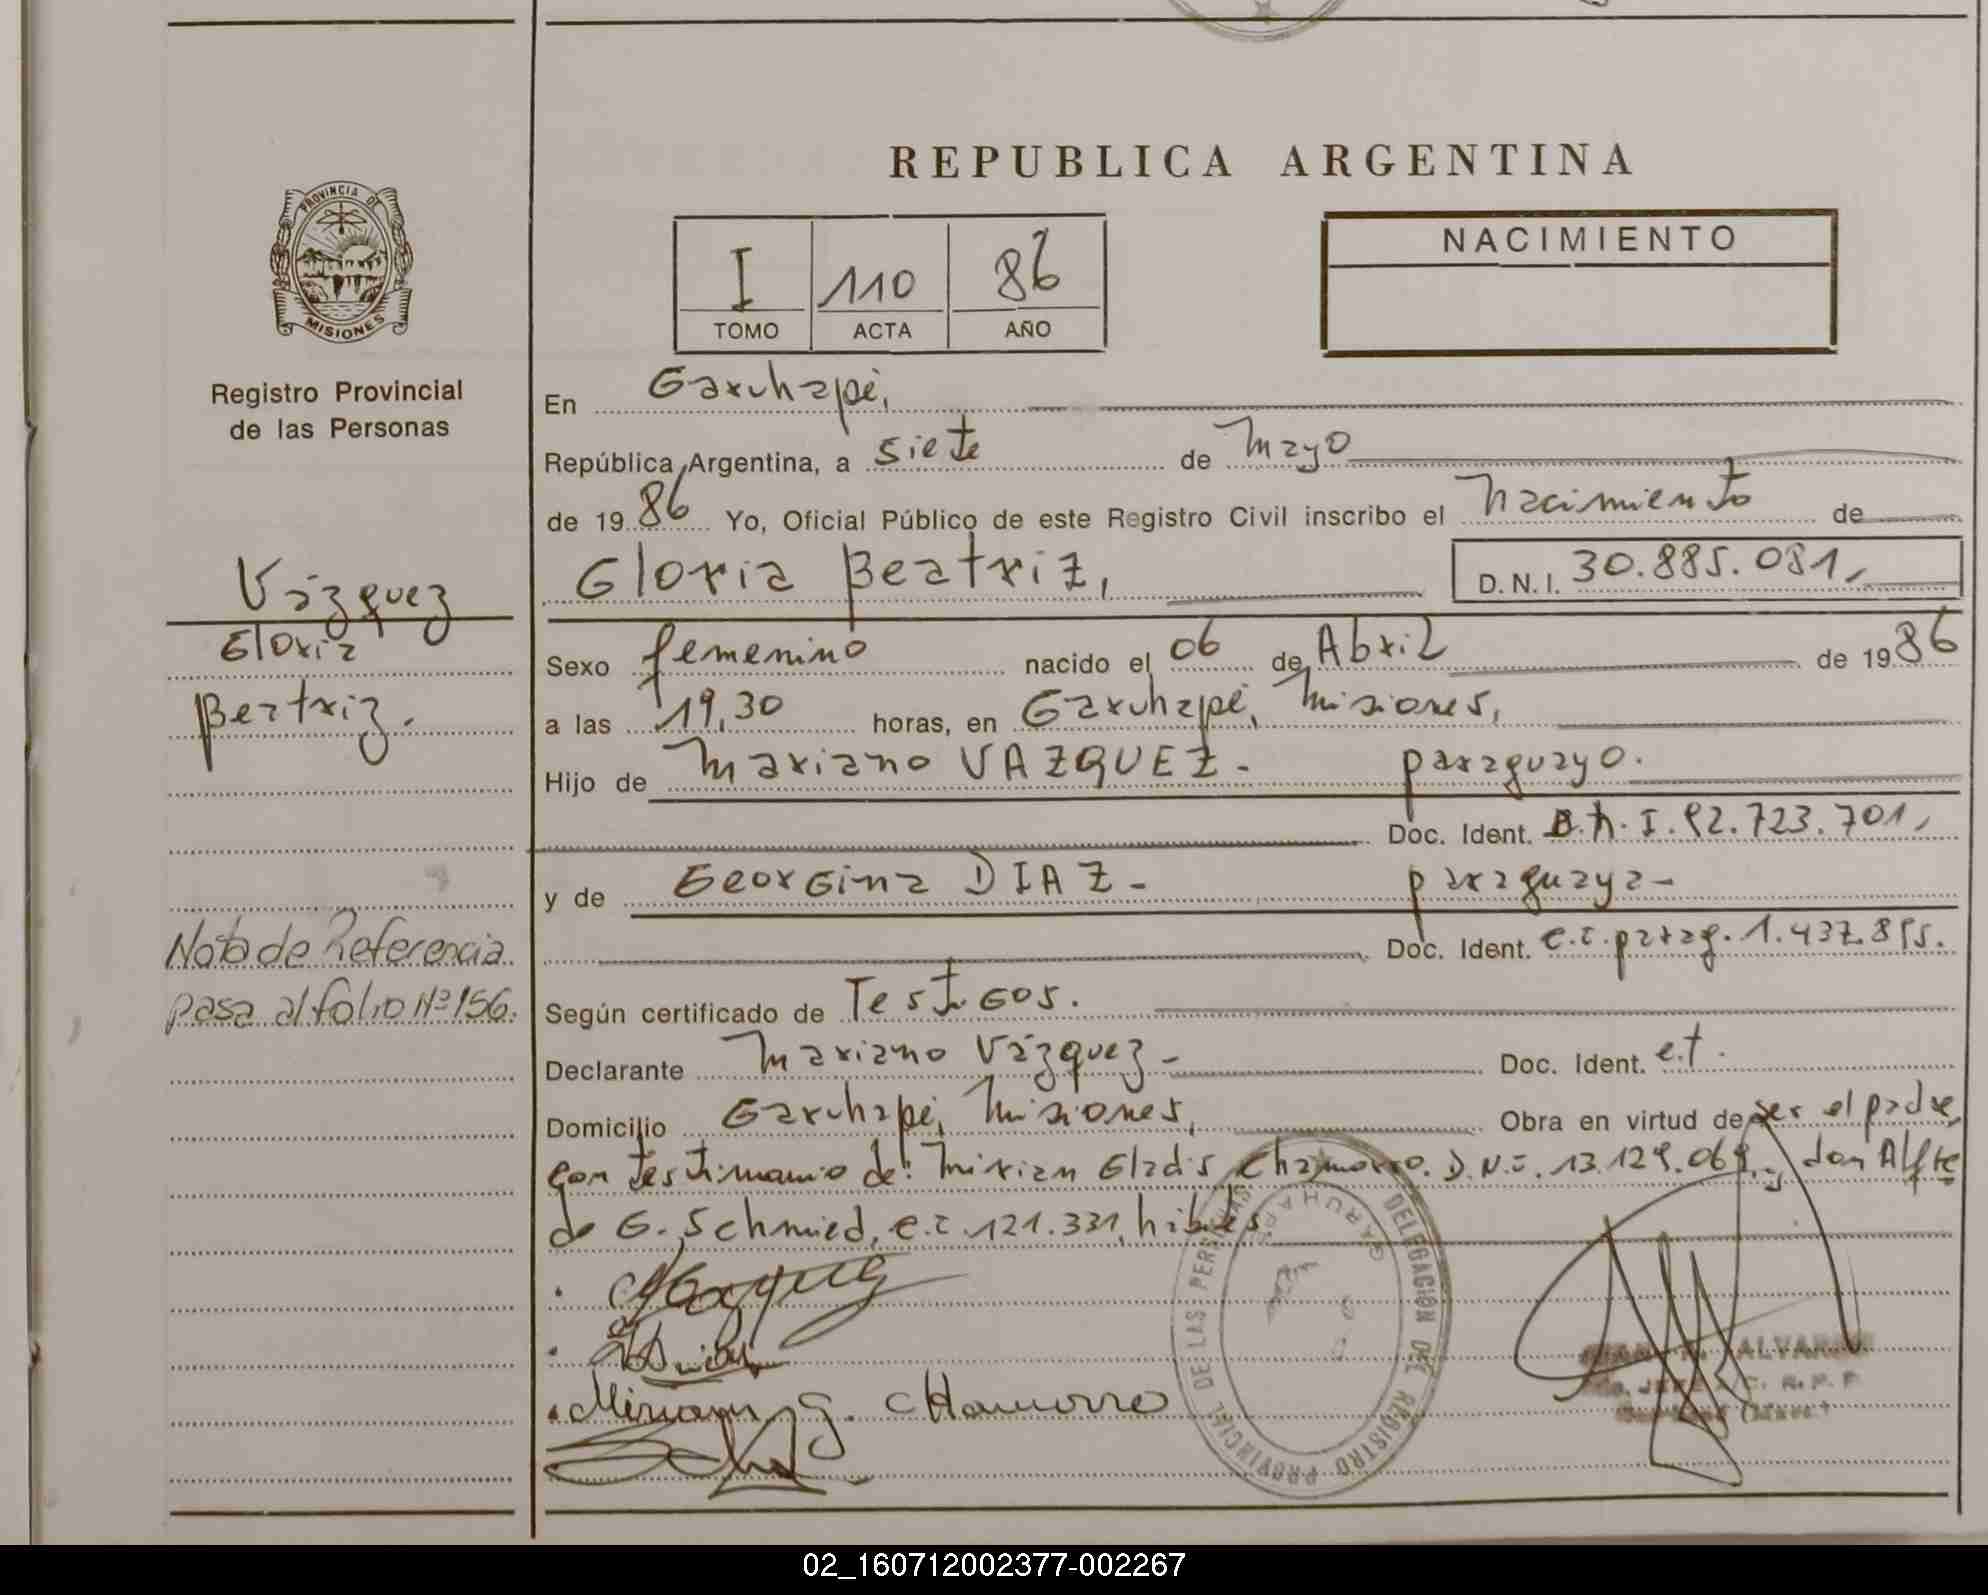 REPUBLICA ARGENTINA
PROVINCIA DE
MISIONES
Registro Provincial
de las Personas
I 110 86
TOMO ACTA AÑO
NACIMIENTO
En Garuhapé,
República Argentina, a siete de Mayo
de 1986 Yo, Oficial Público de este Registro Civil inscribo el Nacimiento de
Gloria Beatriz, D.N.I. 30.885.081,
Vázquez
Gloria
Beatriz.
Sexo femenino nacido el 06 de Abril de 1986
a las 19,30 horas, en Garuhapé, Misiones,
Hijo de Mariano VAZQUEZ - paraguayo.
Doc. Ident. D.N.I. 92.723.701,
y de Georgina DIAZ - paraguaya -
Doc. Ident. C.I. parag. 1.437.895.
Nota de Referencia
pasa al folio Nº 156.
Según certificado de Testigos.
Declarante Mariano Vázquez - Doc. Ident. c.t.
Domicilio Garuhapé, Misiones, Obra en virtud de ser el padre,
con testimonio de: Mirian Gladis Chamorro. D.N.I. 13.129.069, don Alfre
do G. Schmied, C.I. 121.331, hábiles
Miriam G. CHamorro
DELEGACION DEL REGISTRO PROVINCIAL DE LAS PERSONAS
GARUHAPE
ALVAREZ
02_160712002377-002267